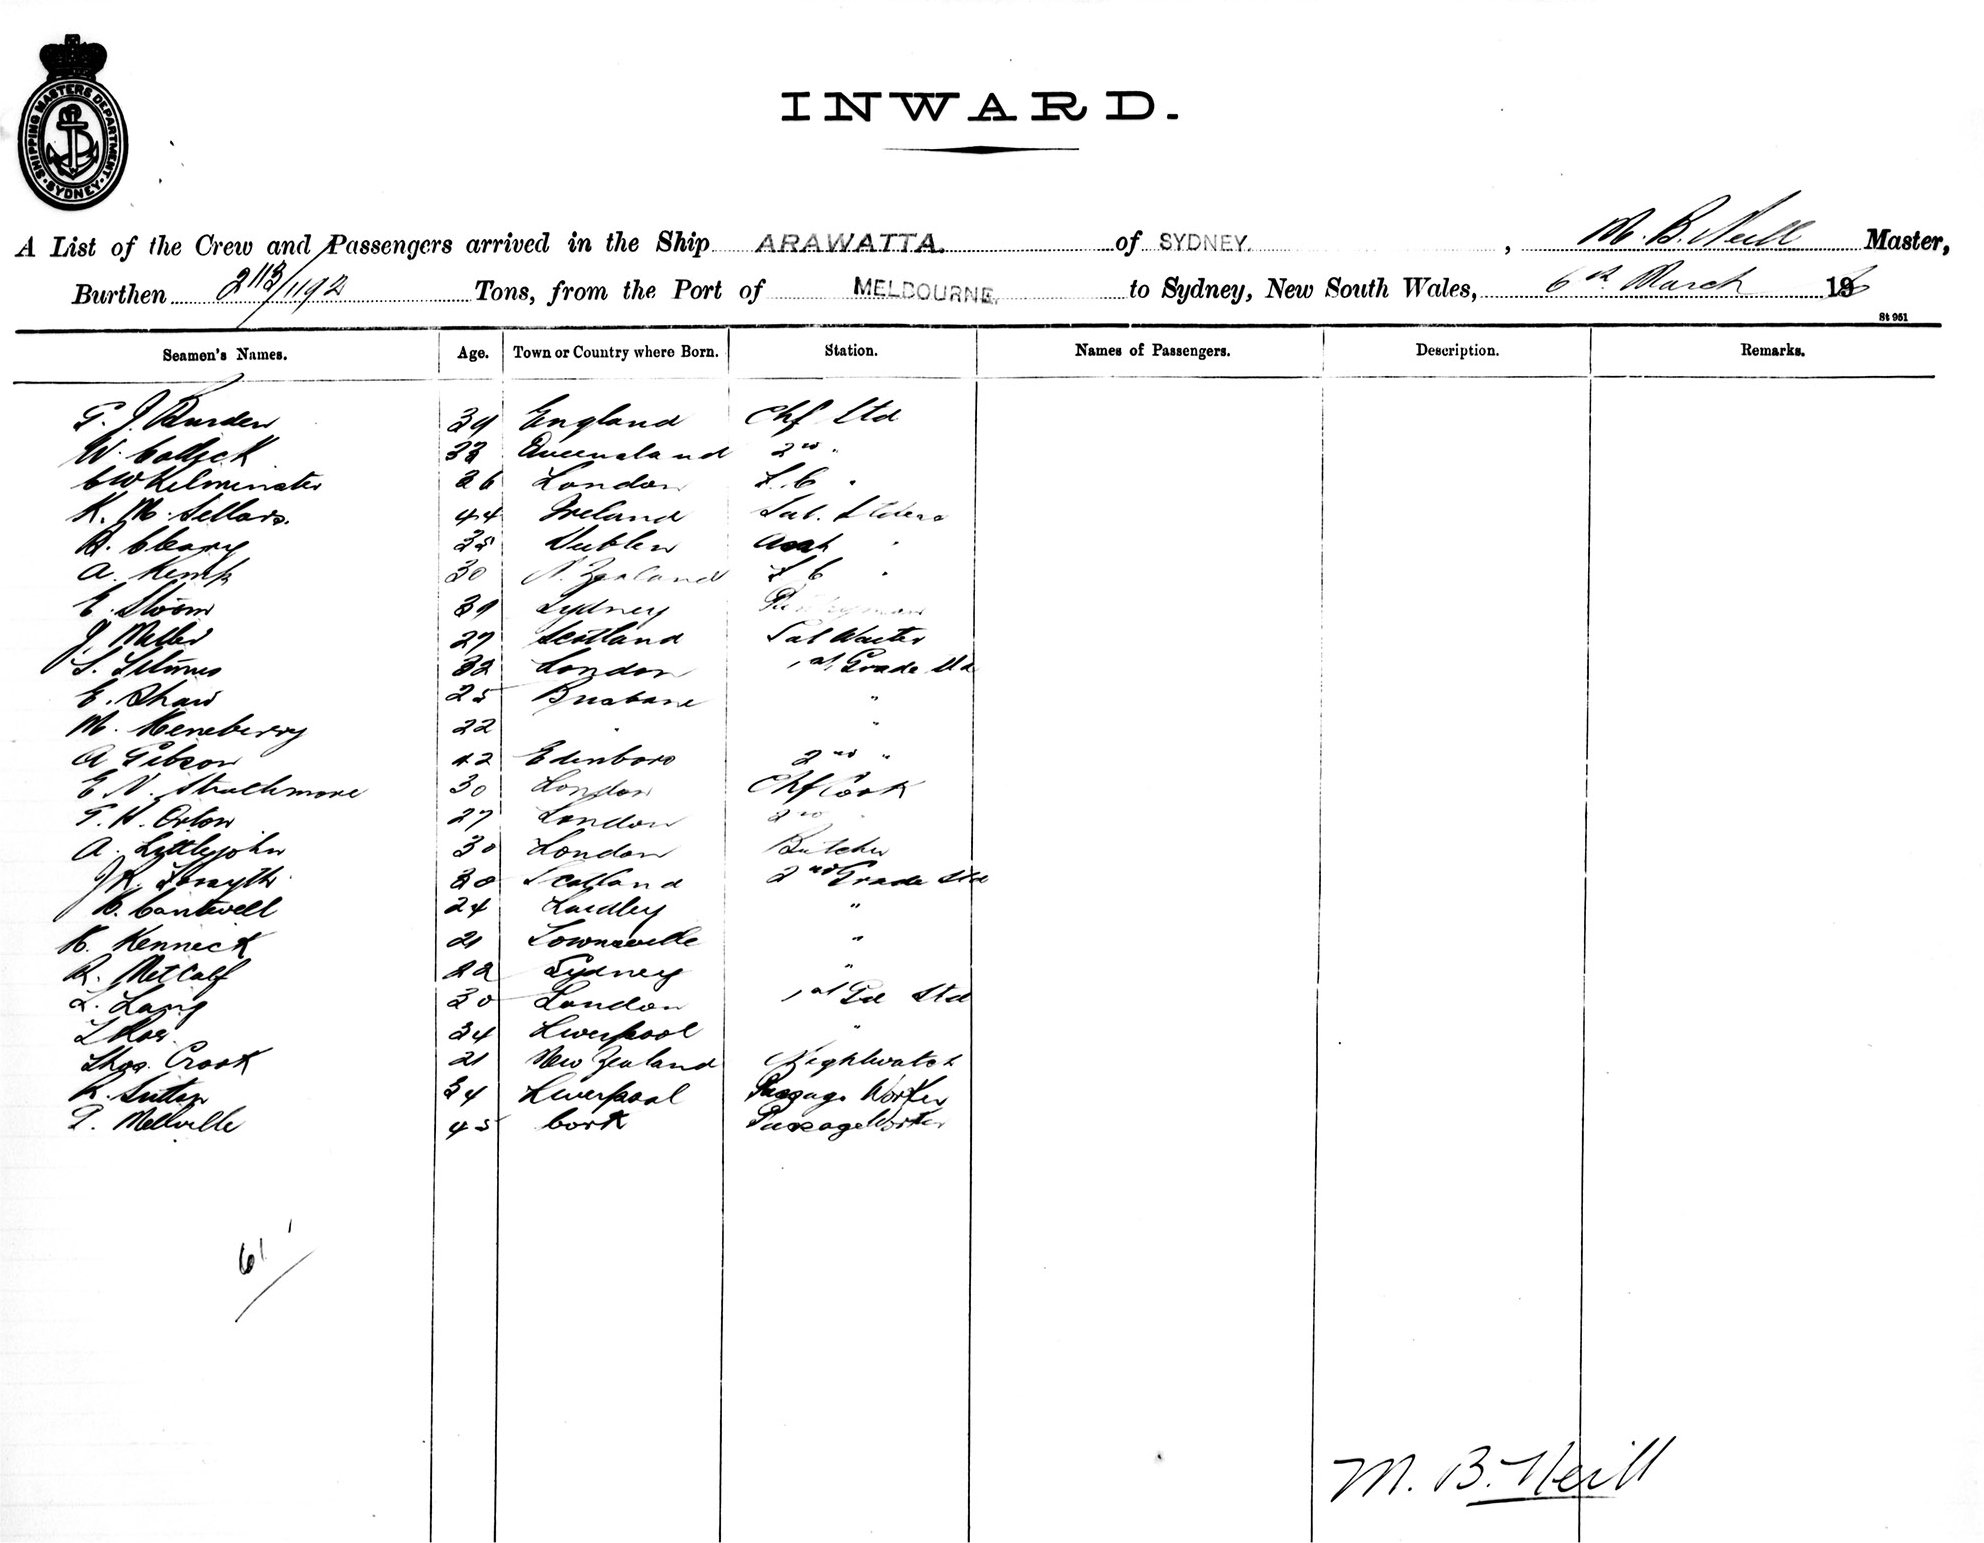 SHIPPING MASTERS DEPARTMENT
SYDNEY
INWARD.
A List of the Crew and Passengers arrived in the Ship ARAWATTA. of SYDNEY. , M. B. Neill Master,
Burthen 2113/1192 Tons, from the Port of MELBOURNE. to Sydney, New South Wales, 6th March 19
St 951
Seamen's Names. Age. Town or Country where Born. Station. Names of Passengers. Description. Remarks.
G. J. Burden 39 England Chf Std
W. 33 Queensland 2nd "
C W Kilminster 26 London F. C "
K. M. Sellars. 44 Ireland Sal. Stdess
A. Cleary 35 Dublin Asst "
A. Kemp 30 N. Zealand F C "
E. 39 Sydney Pantryman
J. 27 Scotland Sal Waiter
S. 32 London 1st Grade Std
E. Shaw 25 Brisbane "
M. Heneberry 22 " "
A Gibson 42 Edinboro 2nd "
E. N. Strathmore 30 London Chf Cook
G. H. Orton 27 London 2nd "
A. Littlejohn 30 London Butcher
J R. Forsyth 30 Scotland 2nd Grade Std
H. Cantwell 24 Laidley "
H. Kennick 21 Townsville "
R. Metcalf 22 Sydney "
L. Lang 30 London 1st Gd Std
34 Liverpool "
Thos. Crook 21 New Zealand Nightwatch
R. Sutton 34 Liverpool Passage Worker
G. Melville 45 Cork Passage Worker
61
M. B. Neill